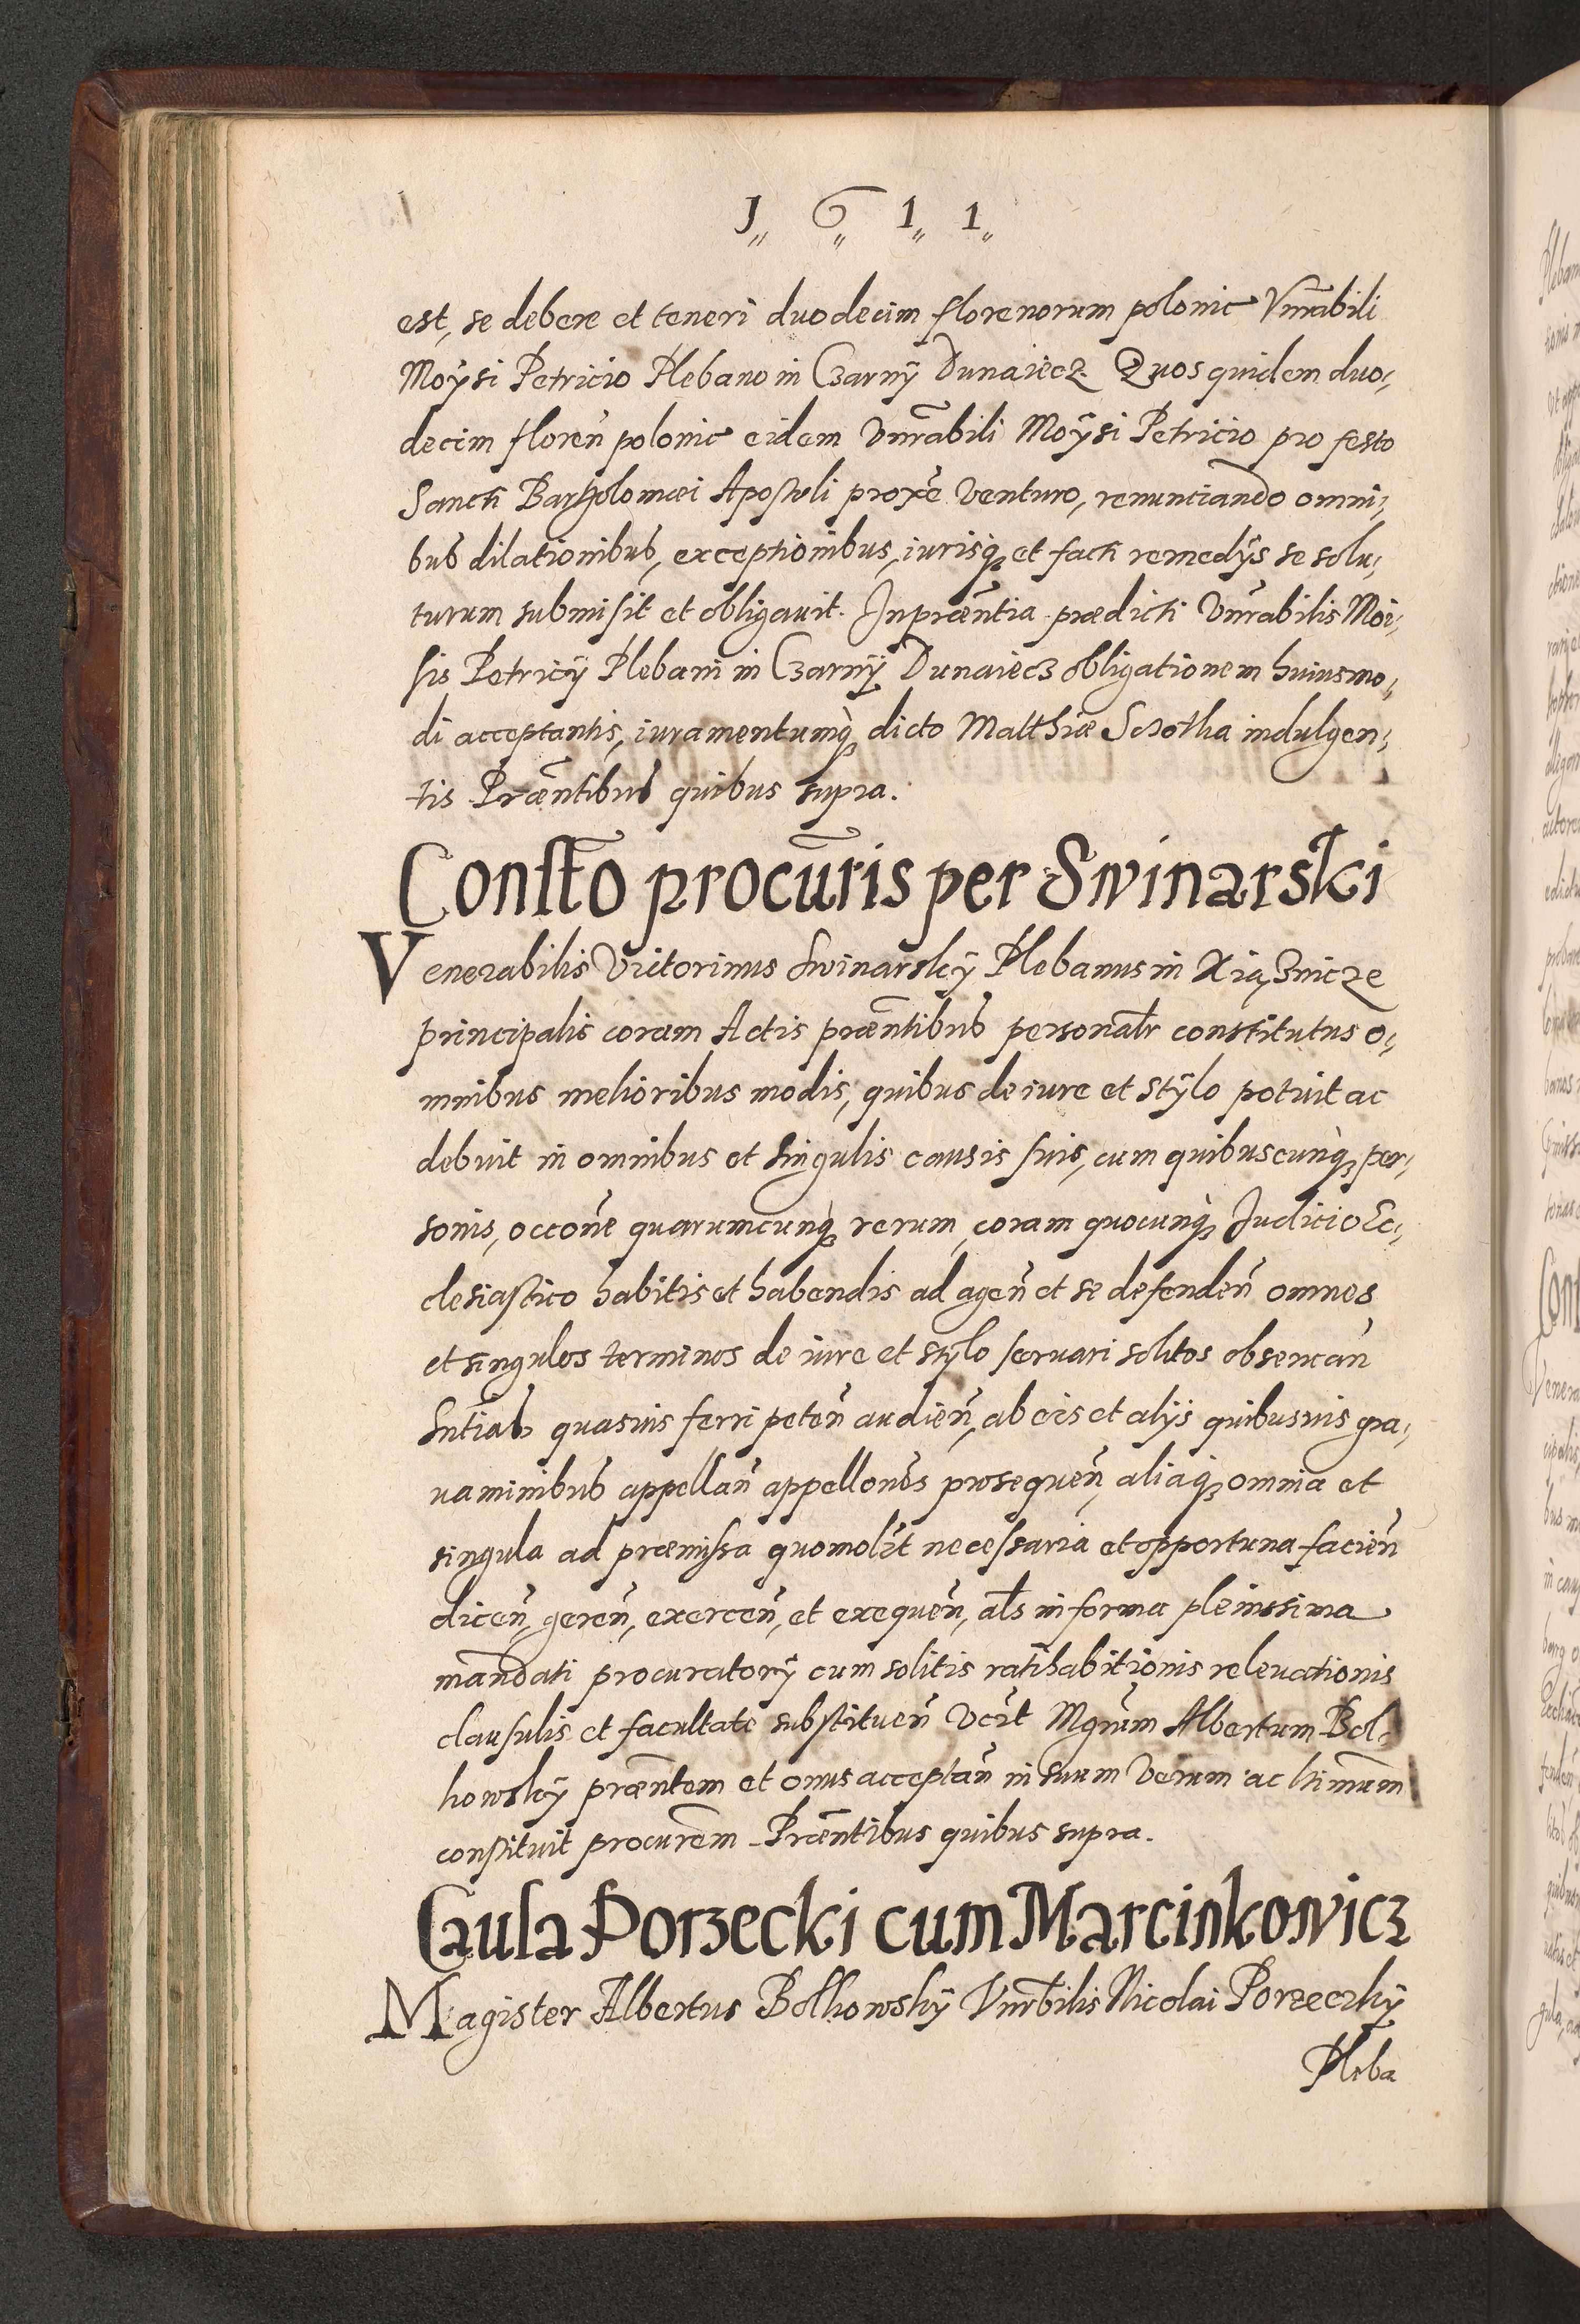 1 6 1 1
est, se debere et teneri duodecim florenorum polonic Vnr̃abili
Moÿsi Petricio Plebano in Czarnÿ Dunaiecz. Quos quidem duo,
decim floreñ polonic eidem Vnr̃abili Moÿsi Petricio pro festo
Sancti Bartholomæi Apostoli proxe venturo, renunciando omni,
bus dilationibus, exceptionibus, iurisq; et facti remedÿs se solu,
turum submisit et obligauit. In præñtia prædicti Vnr̃abilis Moi,
sis Petricÿ Plebani in Czarnÿ Dunaiecz obligationem huiusmo,
di acceptantis, iuramentumq; dicto Matthiæ Szotha indulgen,
tis Præñtibus quibus supra.
Constõ procũris per Swinarski
Venerabilis Victorinus Swinarskÿ Plebanus in Xiąznicze
principalis coram Actis præñtibus personalr constitutus o,
mnibus melioribus modis, quibus de iure et stÿlo potuit ac
debuit in omnibus et singulis causis suis, cum quibuscunq; per,
sonis, occoñe quarumcunq; rerum, coram quocunq; Judicio Ec,
clesiastico habitis et habendis ad ageñ et se defendeñ omnes
et singulos terminos de iure et stÿlo seruari solitos obseruañ
Sntias quasuis ferri peteñ audieñ, ab eis et alÿs quibusuis gra,
uaminibus appellañ appellones prosequeñ, aliaq; omnia et
singula ad præmissa quomolt necessaria et opportuna facieñ
diceñ, gereñ, exerceñ, et exequeñ, als in forma plenissima
mandati procuratorÿ cum solitis ratihabitionis releuationis
clausulis et facultate substitueñ Mgrum Albertum Bol,
howskÿ præñtem et onus acceptañ in suum verum ac ltimum
constituit procurem. Præñtibus quibus supra.
Causa Porzecki cum Marcinkowicz
Magister Albertus Bolhowskÿ Vnrbilis Nicolai Porzeczkÿ
Pleba